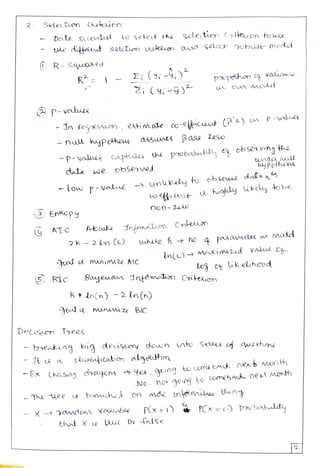 2. Selection Criterion
- Data scientist to select the selection criterion to use
- use different selection criterion and select robust model
① R-Squared
R² = 1 - Σi (yi - ŷi)² / Σi (yi - ȳ)² proportion of variance in our model
② p-values
- In regression, estimate co-efficient (β's) in p-values
- null hypothesis assumes βare zero
- p-values captures the probability of observing the
data we observed under null hypothesis
- low p-value → unlikely to observe data &
coefficient is highly likely to be
non-zero
③ Entropy
④ AIC Akaike Information Criterion
2k - 2 ln (L) where k → no of parameters in model
ln(L) → maximized value of
goal is minimize AIC log of likelihood
⑤ BIC Bayesian Information Criterion
k * ln(n) - 2 ln(n)
goal is minimize BIC
Decision Trees
- breaking big decisions down into series of questions
- It is a classification algorithm
- Ex Chasing dragons → Yes, going to comeback next month
No. not going to comeback next month
- The tree is branched on more informative thing
- X → random variable P(X=1) & P(X=0) probability
that X is true or false
2